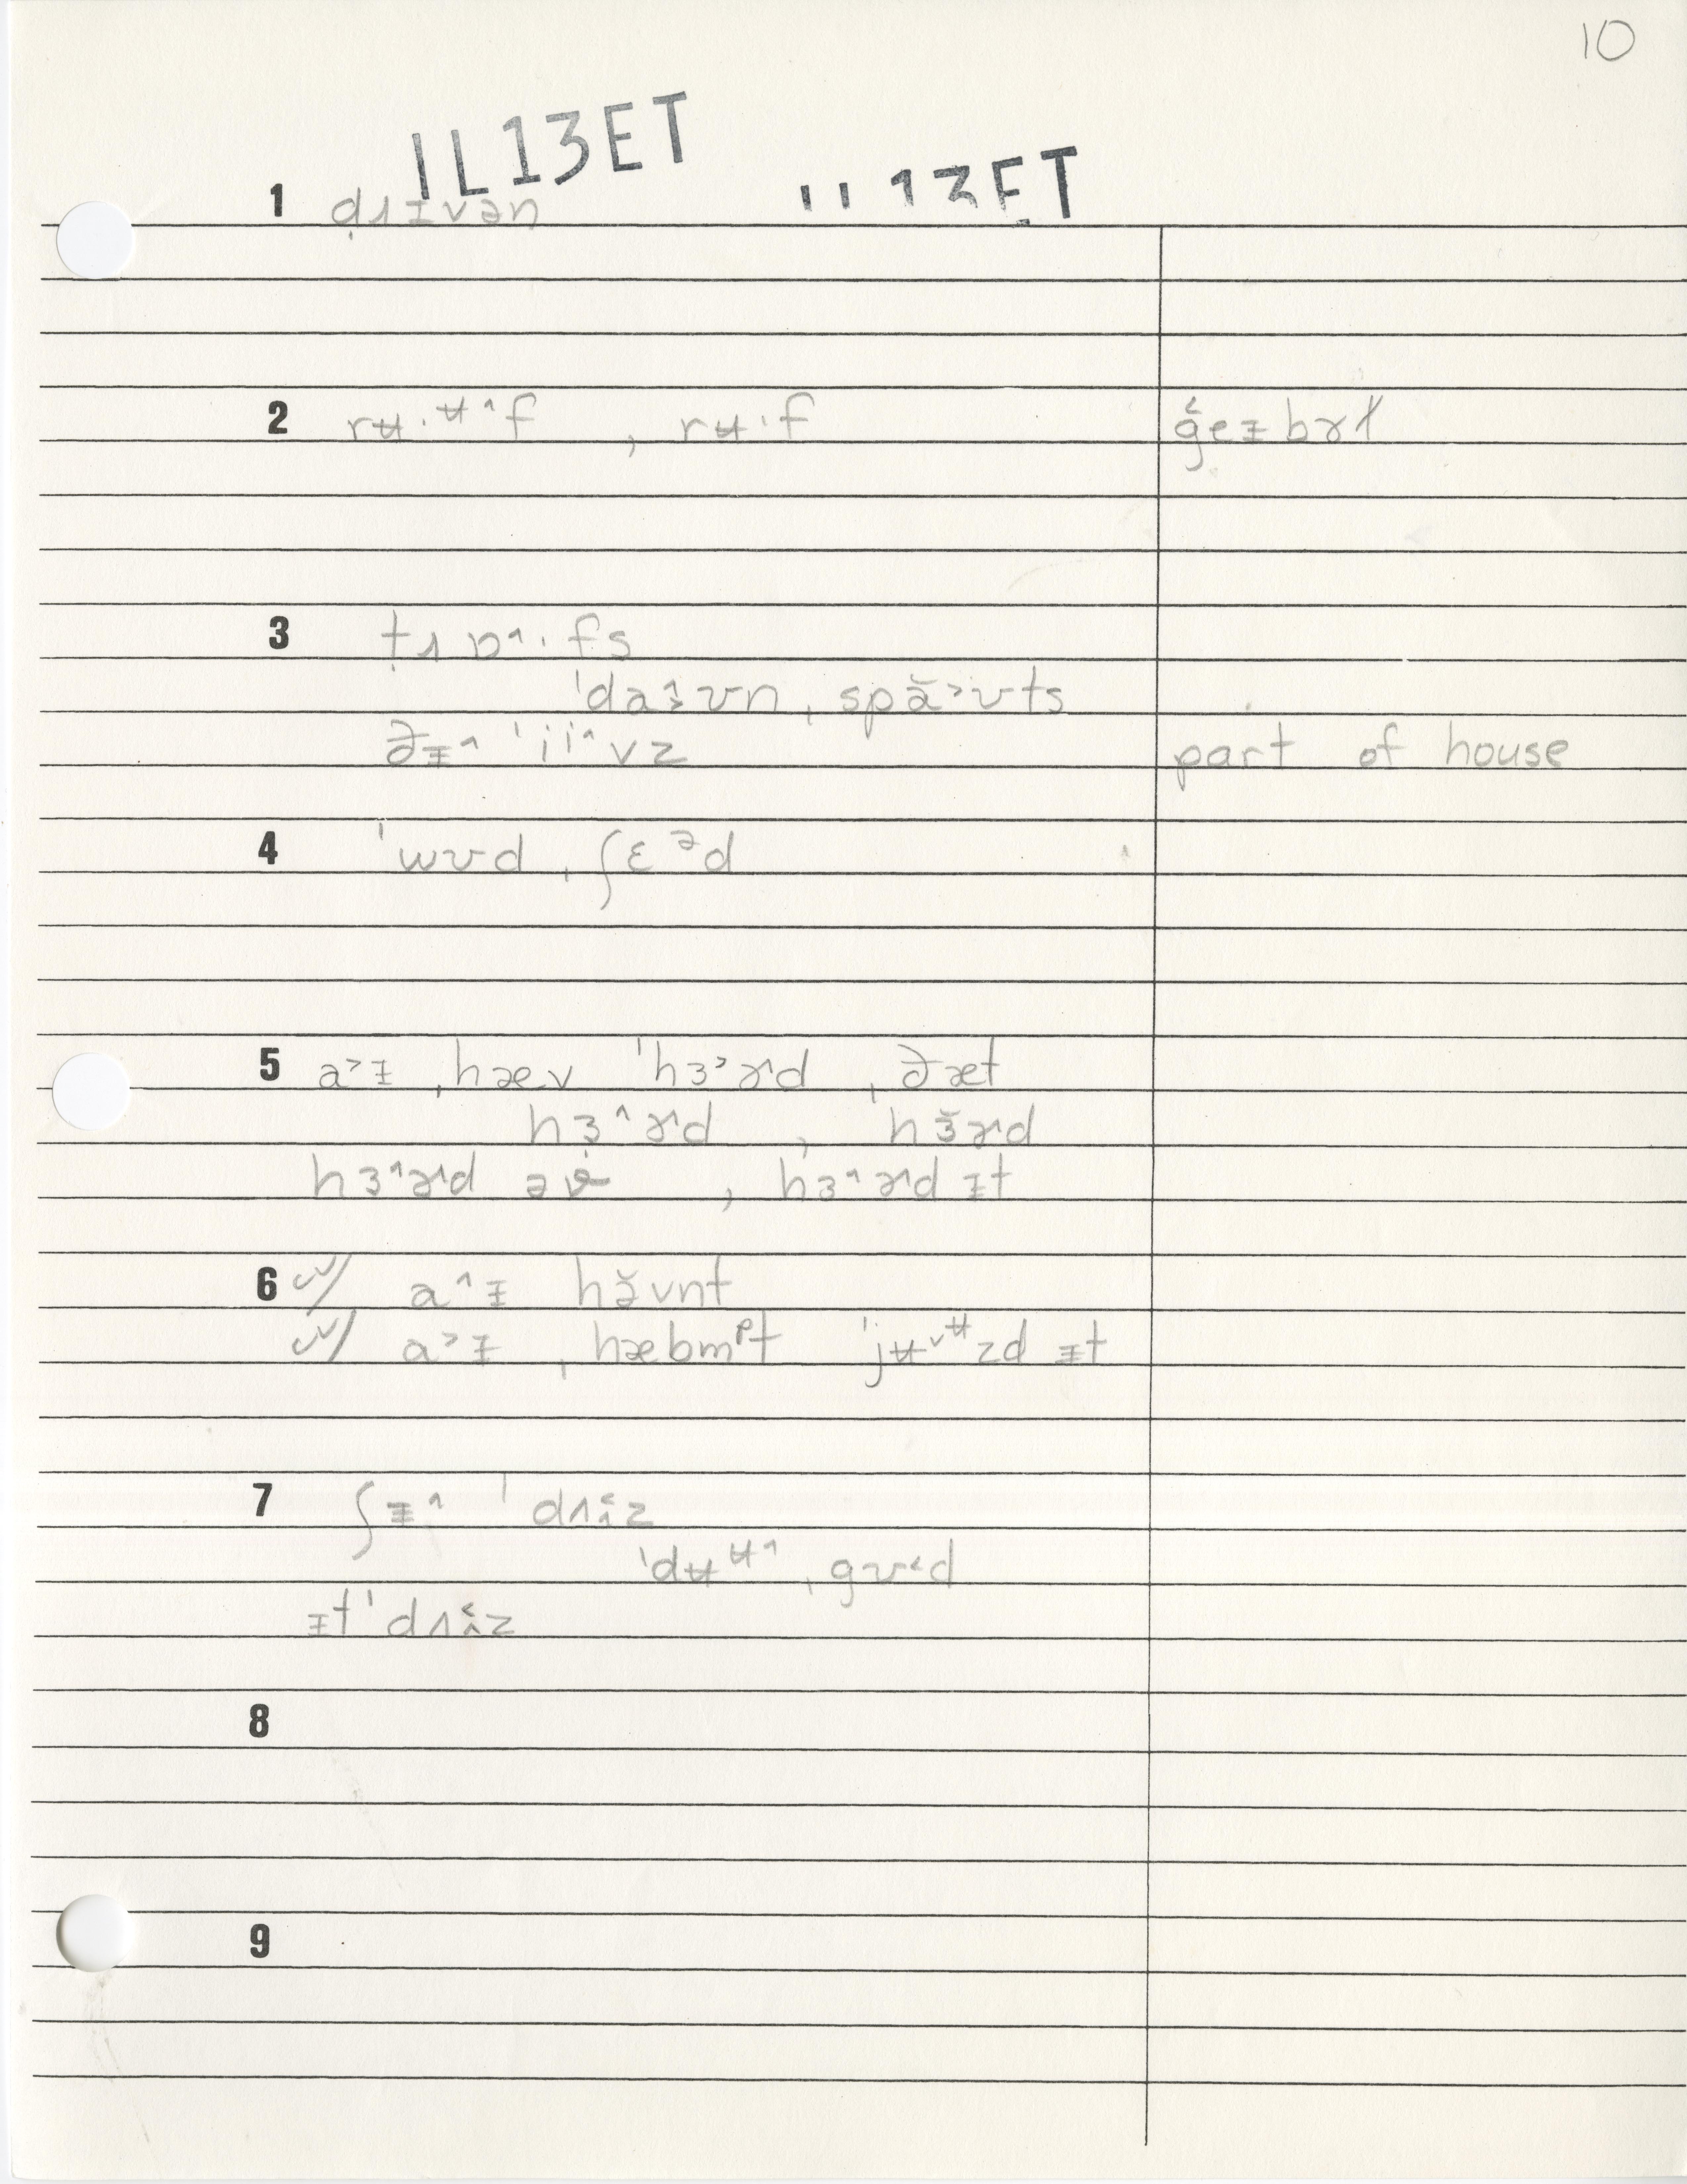 10
IL13ET
IL13ET
1 dɹᵻvən
2 rʉ·ʉ^f , rʉ·f ğeᵻbɤɫ
3 tɹɒ^·fs
ˈdaᵻʊn ˌspă˃ʊts
ðᵻ^ ˈii^vz part of house
4 ˈwʊd ˌʃɛᵊd
5 a˃ᵻ ˌhæv ˈhɜ˃ɚd ˌðæt
hɜ^ɚd , hɜ̆ɚd
hɜ^ɚd əv , hɜ^ɚd ᵻt
6 ✓✓/ a^ᵻ hăvnt
✓✓/ a˃ᵻ ˌhæbmᵖt ˈjʉ˅ʉzd ᵻt
7 ʃᵻ^ ˈdʌiz
ˈdʉʉ^ ˌgʊ˂d
ᵻt ˈdʌiz
8
9